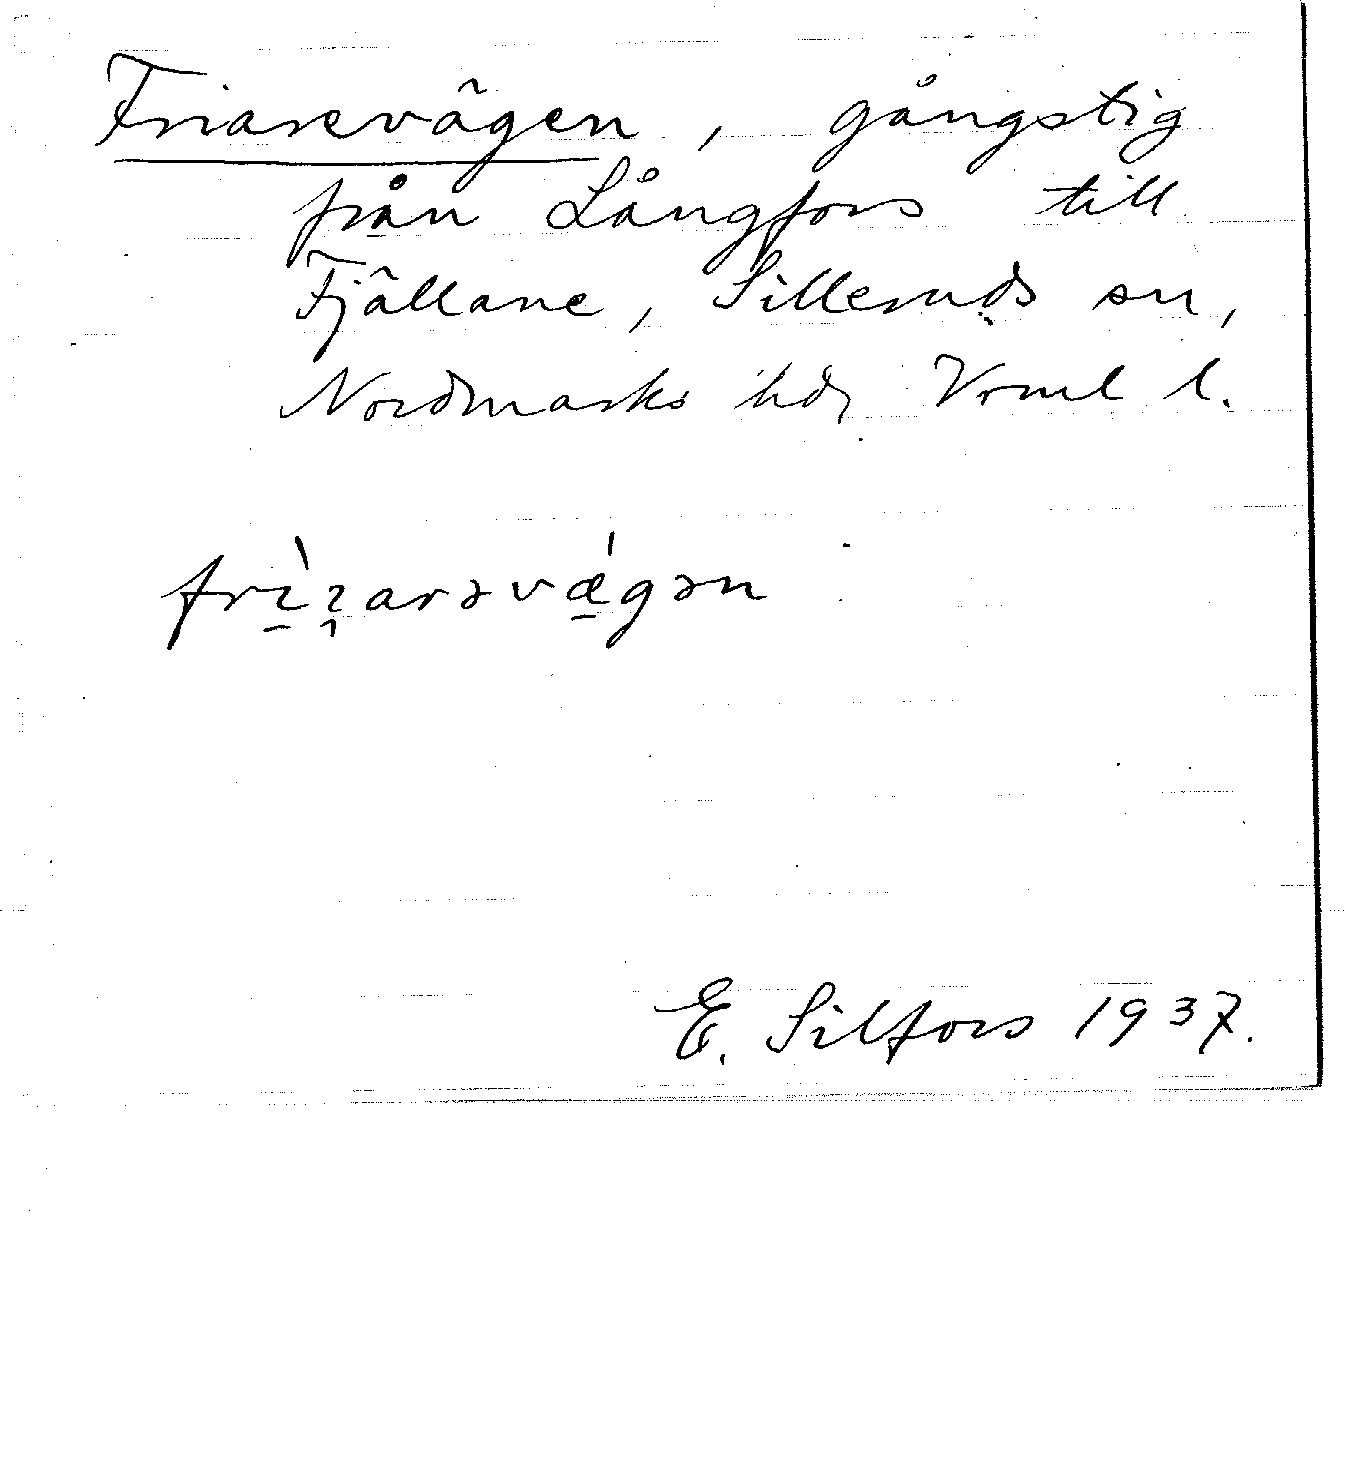 Friarevägen, gångstig
från Långfors till
Fjällane, Silleruds sn,
Nordmarks hd, Vrml l.
frìɿarəvǽgən
E. Silfors 1937.